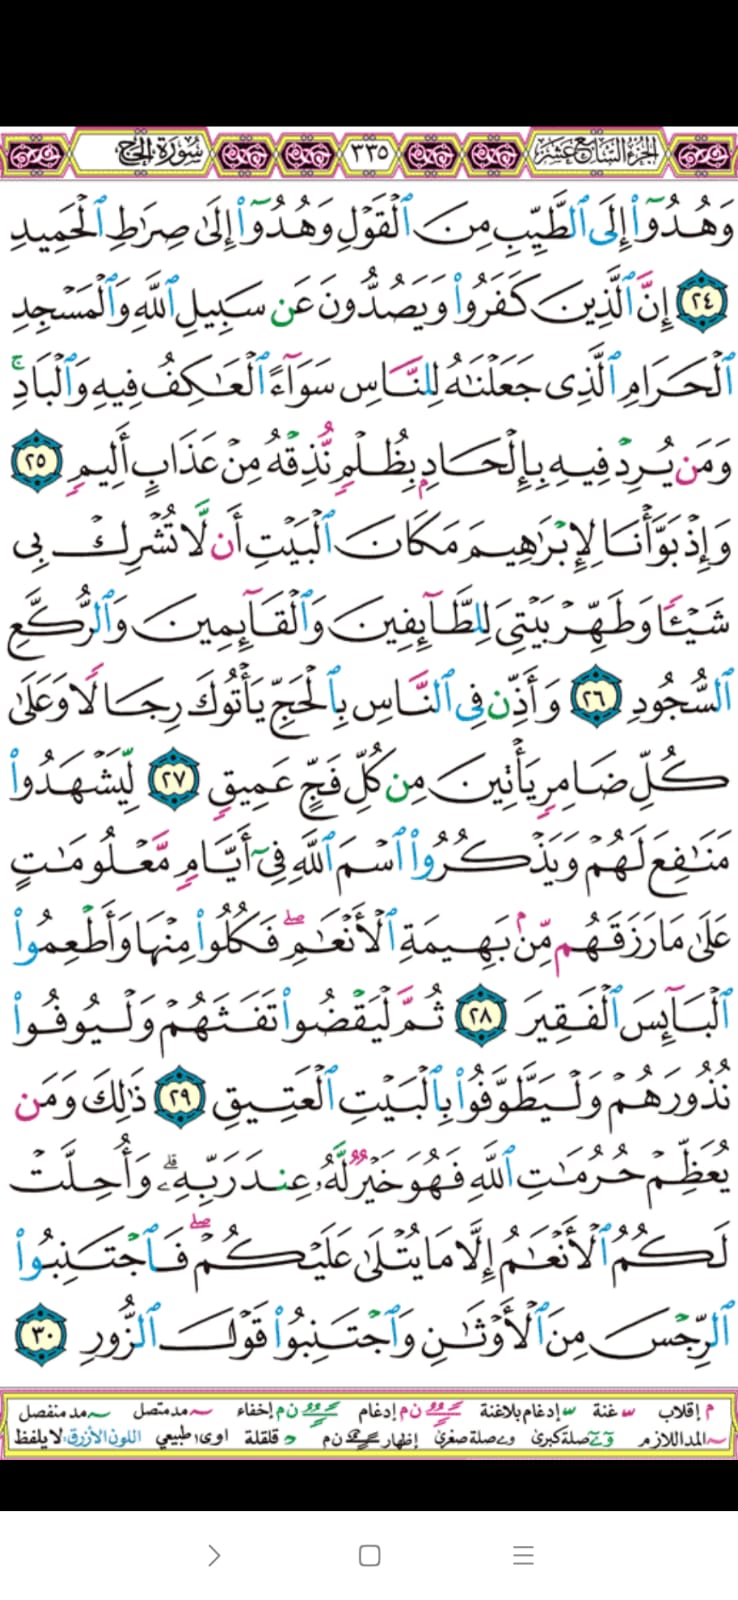 الجزء السابع عشر ٣٣٥ سورة الحج
وَهُدُوٓا۟ إِلَى ٱلطَّيِّبِ مِنَ ٱلْقَوْلِ وَهُدُوٓا۟ إِلَىٰ صِرَٰطِ ٱلْحَمِيدِ
٢٤ إِنَّ ٱلَّذِينَ كَفَرُوا۟ وَيَصُدُّونَ عَن سَبِيلِ ٱللَّهِ وَٱلْمَسْجِدِ
ٱلْحَرَامِ ٱلَّذِى جَعَلْنَٰهُ لِلنَّاسِ سَوَآءً ٱلْعَٰكِفُ فِيهِ وَٱلْبَادِ ۚ
وَمَن يُرِدْ فِيهِ بِإِلْحَادٍۭ بِظُلْمٍ نُّذِقْهُ مِنْ عَذَابٍ أَلِيمٍ ٢٥
وَإِذْ بَوَّأْنَا لِإِبْرَٰهِيمَ مَكَانَ ٱلْبَيْتِ أَن لَّا تُشْرِكْ بِى
شَيْـًٔا وَطَهِّرْ بَيْتِىَ لِلطَّآئِفِينَ وَٱلْقَآئِمِينَ وَٱلرُّكَّعِ
ٱلسُّجُودِ ٢٦ وَأَذِّن فِى ٱلنَّاسِ بِٱلْحَجِّ يَأْتُوكَ رِجَالًا وَعَلَىٰ
كُلِّ ضَامِرٍ يَأْتِينَ مِن كُلِّ فَجٍّ عَمِيقٍ ٢٧ لِّيَشْهَدُوا۟
مَنَٰفِعَ لَهُمْ وَيَذْكُرُوا۟ ٱسْمَ ٱللَّهِ فِىٓ أَيَّامٍ مَّعْلُومَٰتٍ
عَلَىٰ مَا رَزَقَهُم مِّنۢ بَهِيمَةِ ٱلْأَنْعَٰمِ ۖ فَكُلُوا۟ مِنْهَا وَأَطْعِمُوا۟
ٱلْبَآئِسَ ٱلْفَقِيرَ ٢٨ ثُمَّ لْيَقْضُوا۟ تَفَثَهُمْ وَلْيُوفُوا۟
نُذُورَهُمْ وَلْيَطَّوَّفُوا۟ بِٱلْبَيْتِ ٱلْعَتِيقِ ٢٩ ذَٰلِكَ وَمَن
يُعَظِّمْ حُرُمَٰتِ ٱللَّهِ فَهُوَ خَيْرٌ لَّهُۥ عِندَ رَبِّهِۦ ۗ وَأُحِلَّتْ
لَكُمُ ٱلْأَنْعَٰمُ إِلَّا مَا يُتْلَىٰ عَلَيْكُمْ ۖ فَٱجْتَنِبُوا۟
ٱلرِّجْسَ مِنَ ٱلْأَوْثَٰنِ وَٱجْتَنِبُوا۟ قَوْلَ ٱلزُّورِ ٣٠
م إقلاب غنة إدغام بلاغنة ن م إدغام ن م إخفاء مد متصل مد منفصل
المد اللازم صلة كبرى صلة صغرى إظهار ن م قلقلة اوى طبيعي اللون الأزرق: لا يلفظ